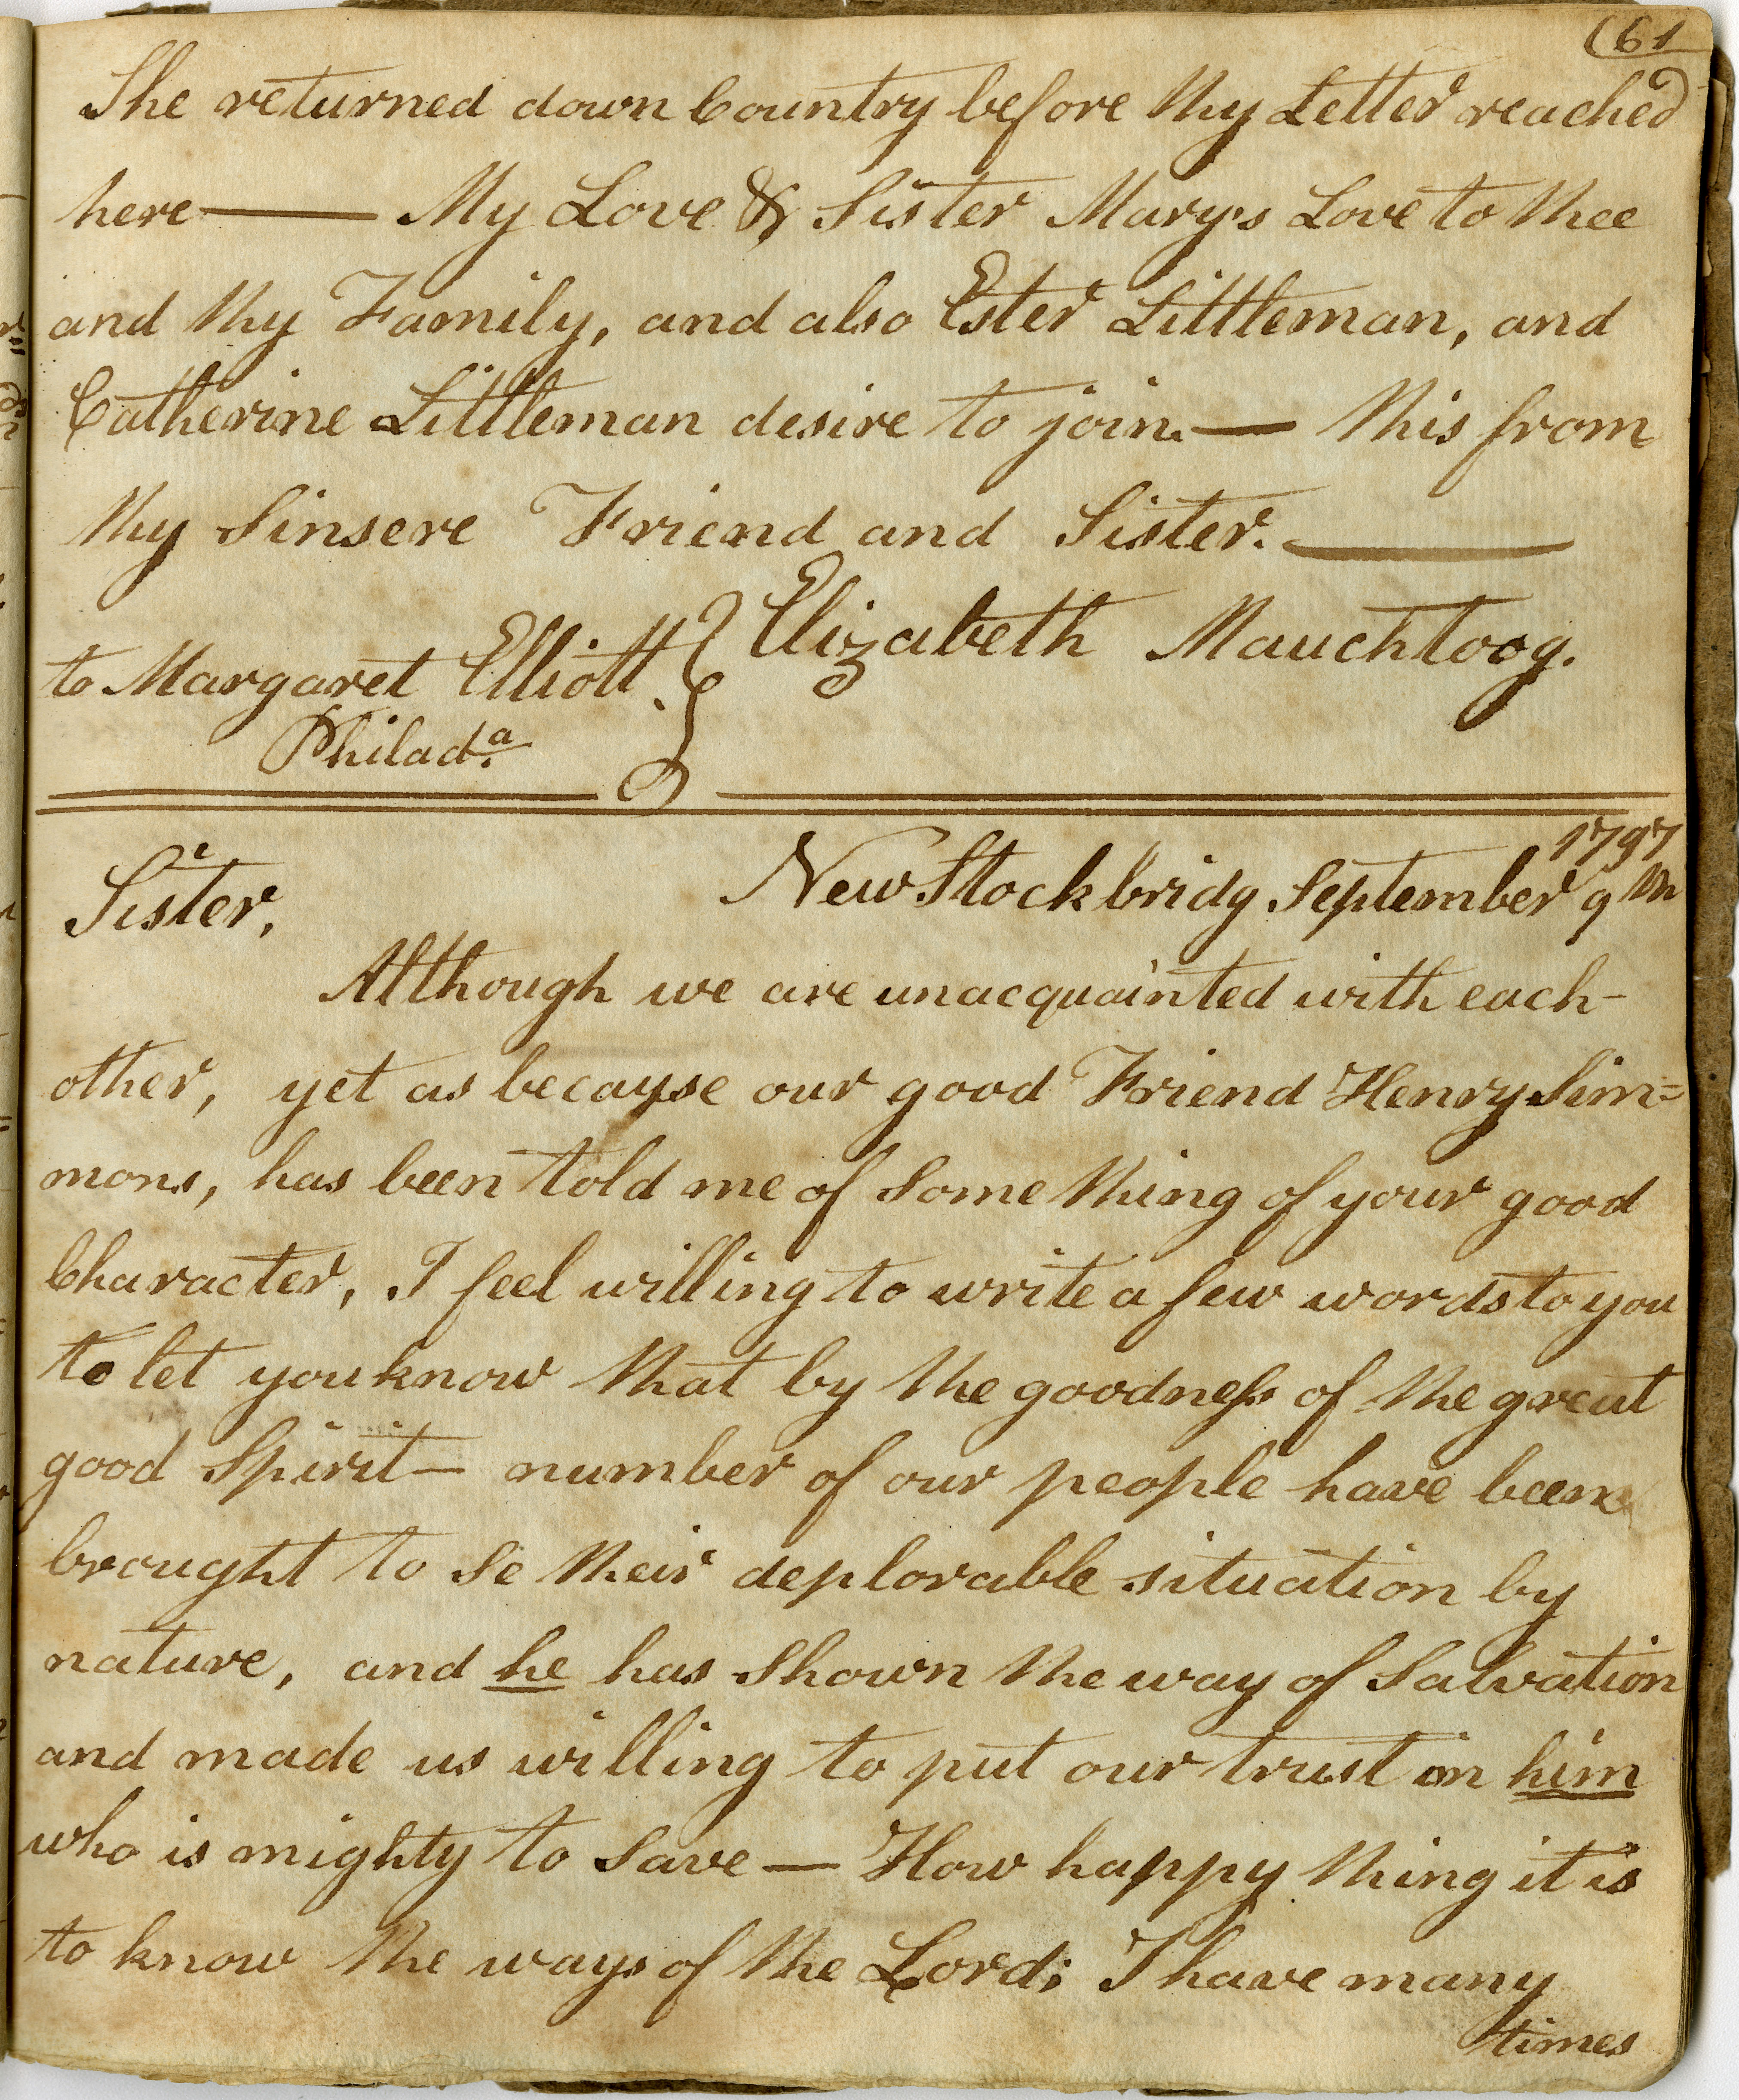 (61
She returned down Country before thy Letter reached
here — My Love & Sister Mary's Love to thee
and thy Family, and also Ester Littleman, and
Catherine Littleman desire to join. — this from
thy Sinsere Friend and Sister. —
Elizabeth Mauchtoog.
to Margaret Elliott.
Philadª.
1797
New Stockbridg September 9th
Sister,
Although we are unacquainted with each-
other, yet as becayse our good Friend Henry Sim=
mons, has been told me of some thing of your good
Character, I feel willing to write a few words to you
to let you know that by the goodness of the great
good Spirit — number of our people have been
brought to se their deplorable situation by
nature, and he has shown the way of Salvation
and made us willing to put our trust in him
who is mighty to save — How happy thing it is
to know the ways of the Lord; I have many
times